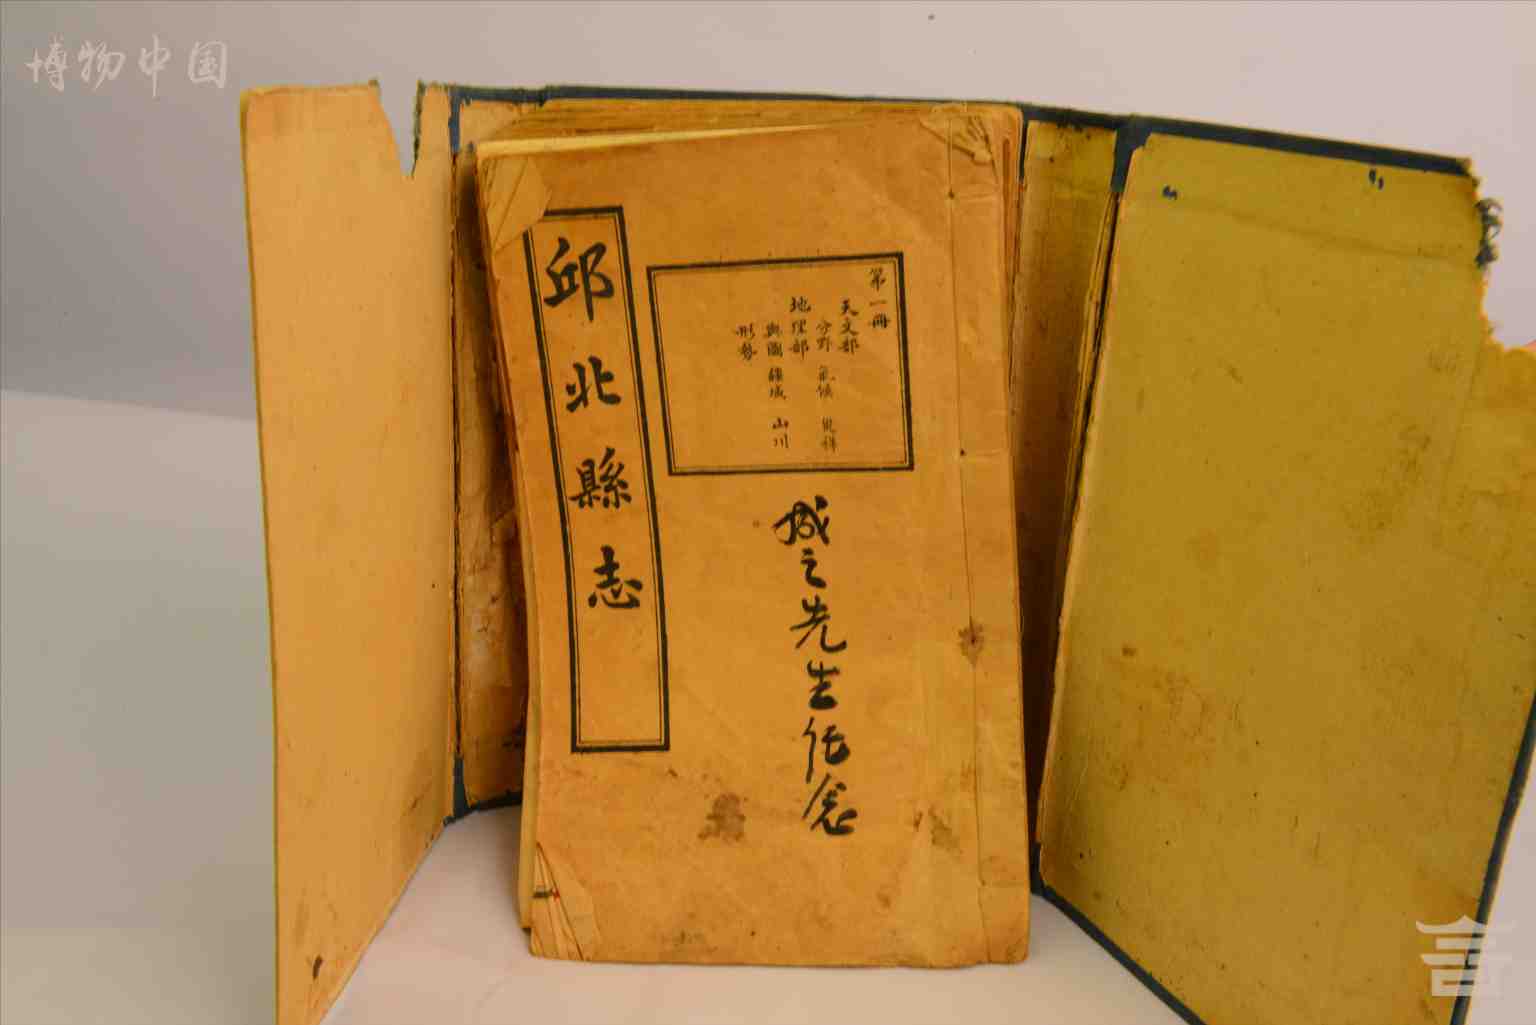 博物中国
邱北縣志
第一冊
天文部
分野 氣候 祝祥
地理部
輿圖 疆域 山川
形勢
城之先生任念